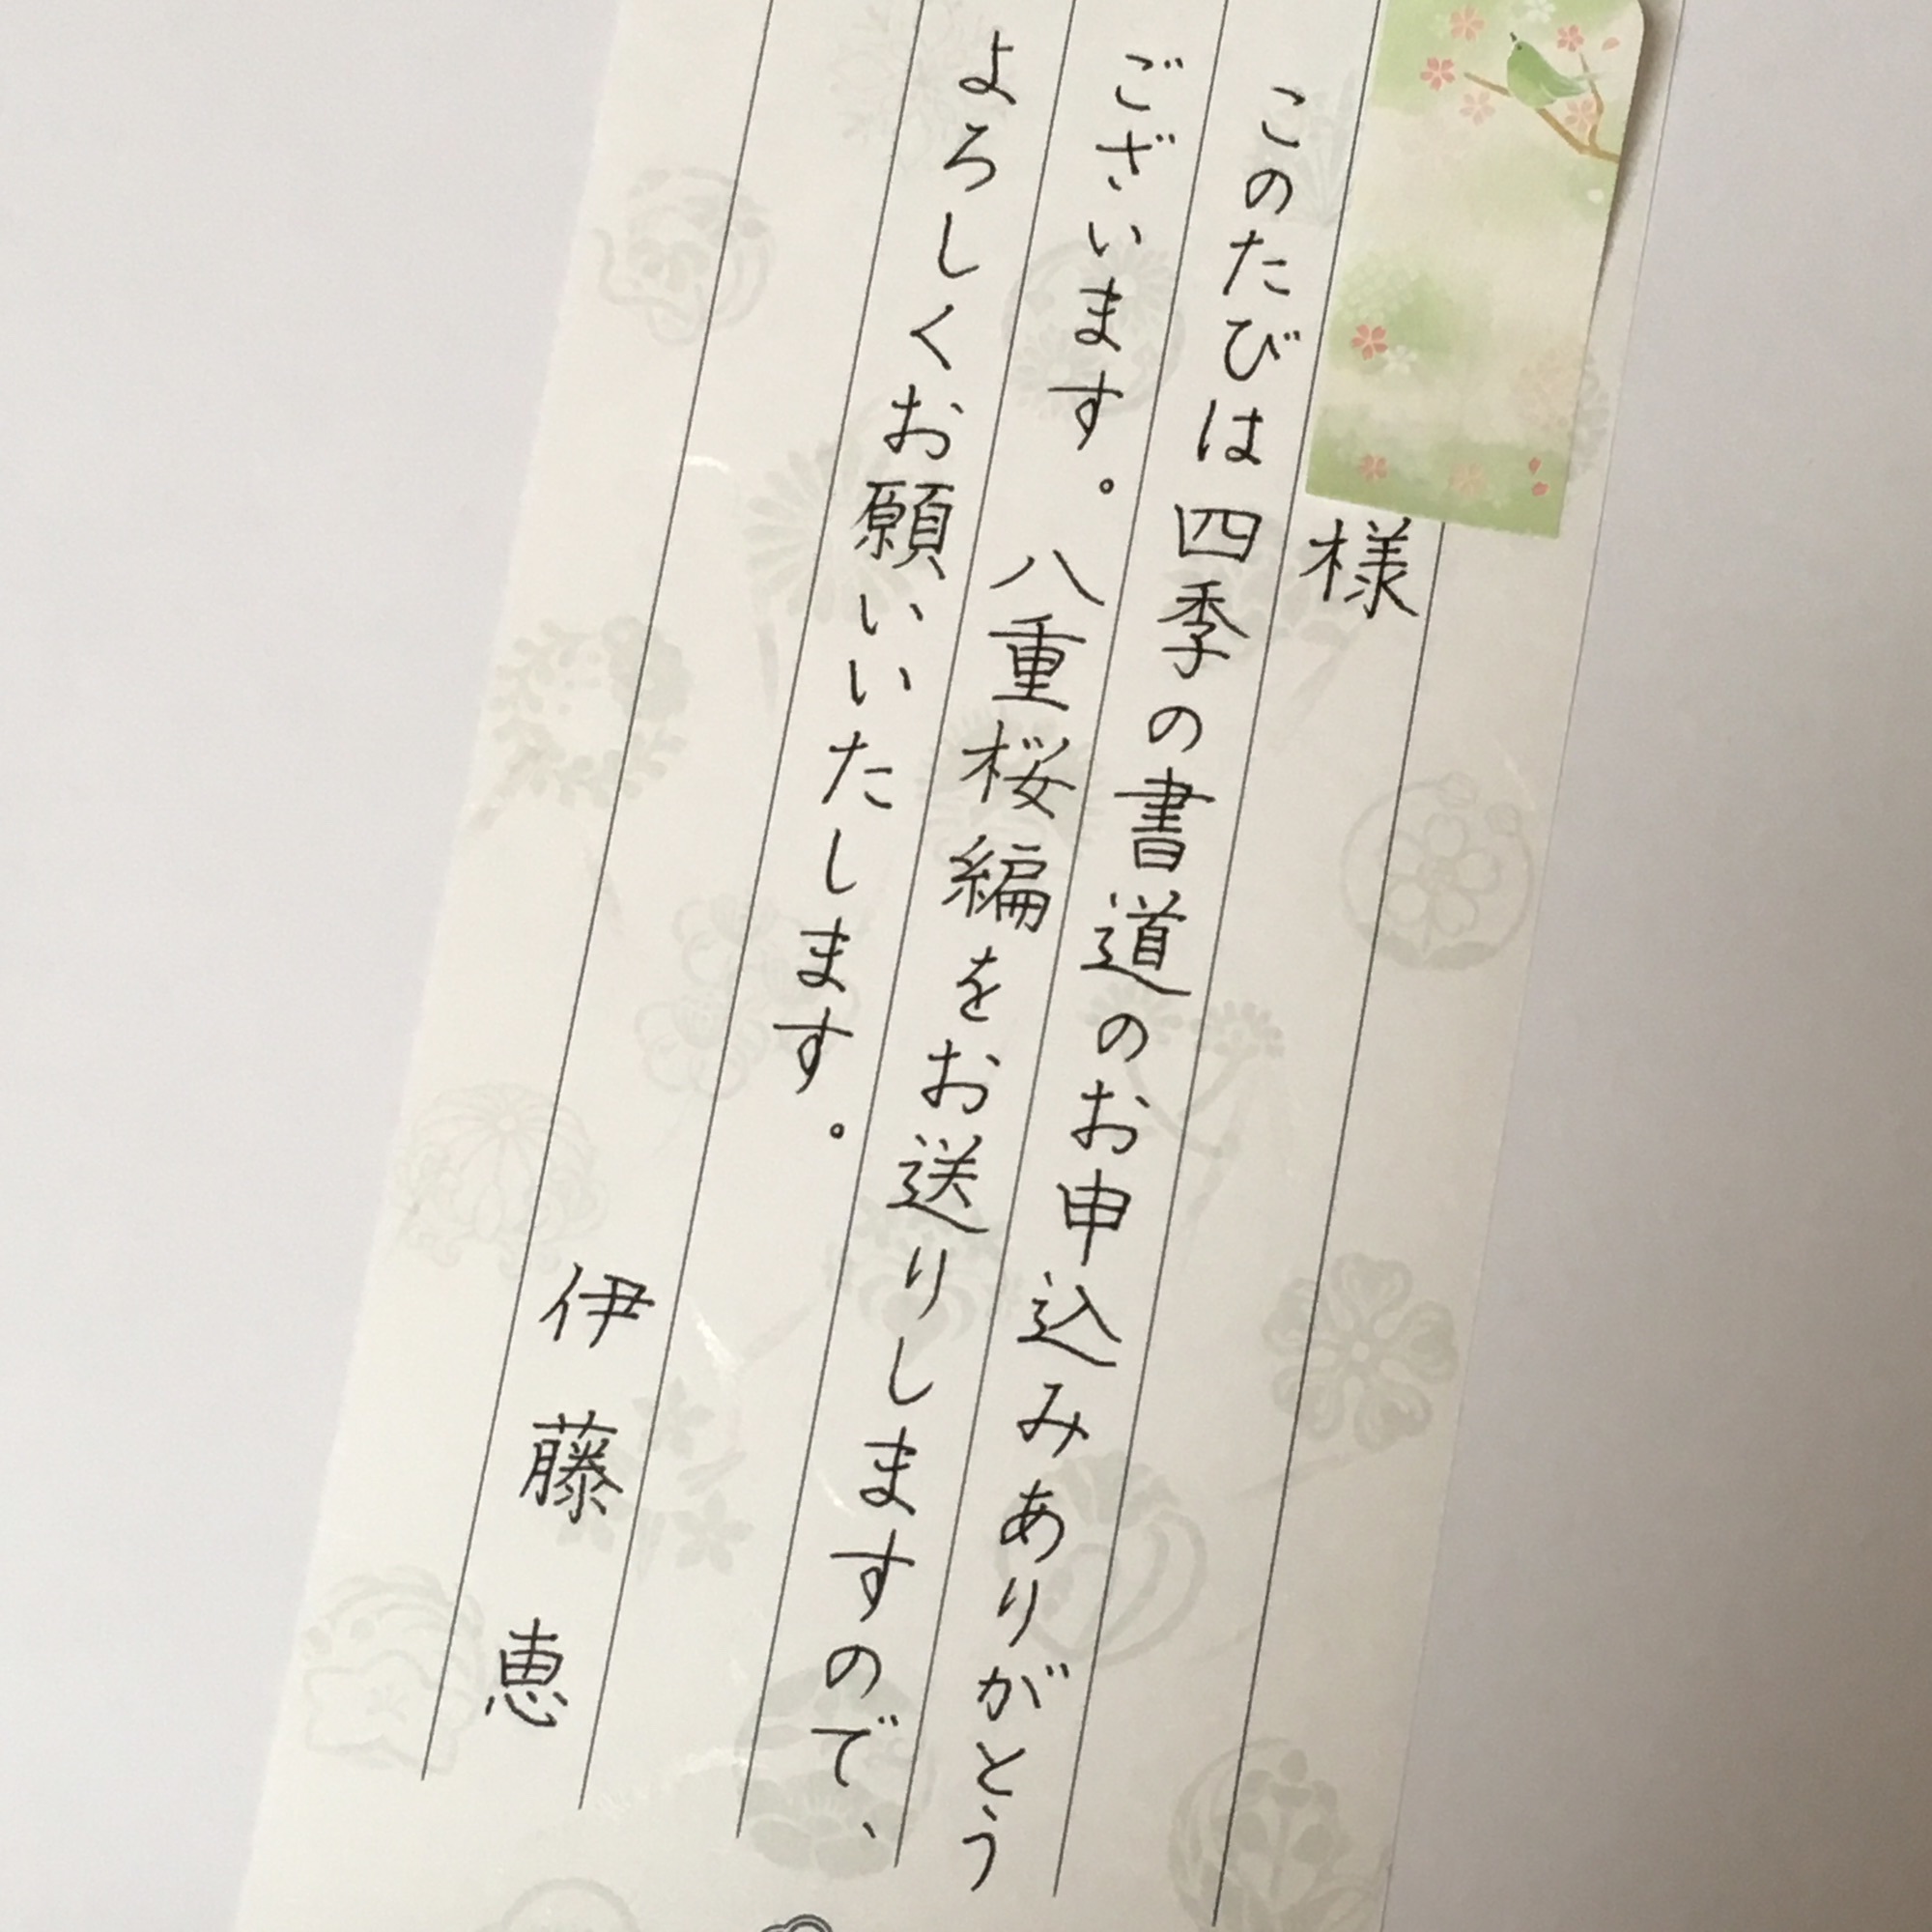 様
このたびは四季の書道のお申込みありがとう
ございます。八重桜編をお送りしますので、
よろしくお願いいたします。
伊藤恵